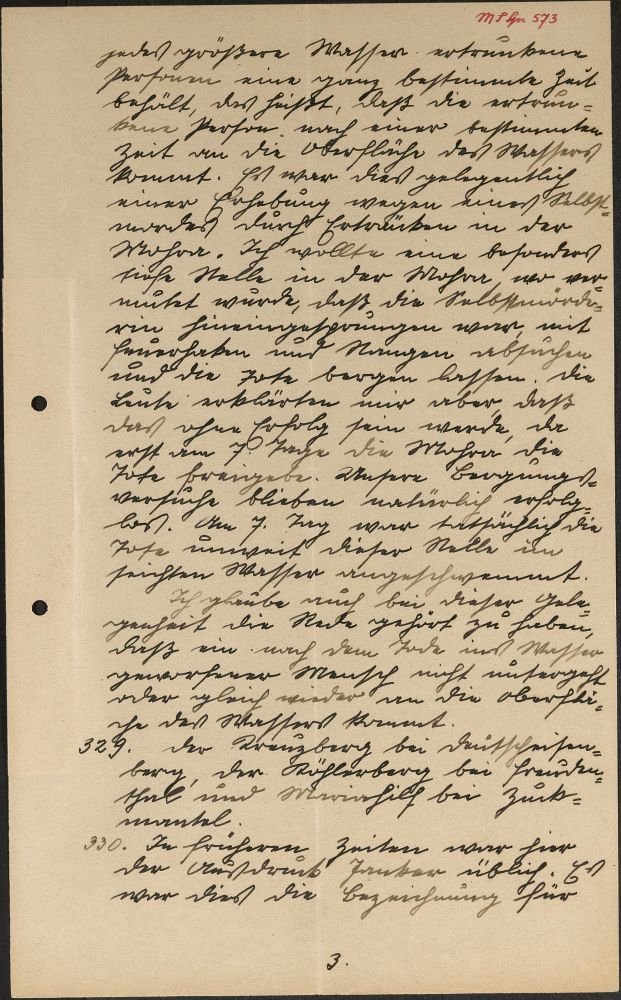 MSGn 573
jedes größere Wasser ertrunkene
Personen eine ganz bestimmte Zeit
behält, das heißt, daß die ertrun=
kene Person nach einer bestimmten
Zeit an die Oberfläche des Wassers
kommt. Es war dies gelegentlich
einer Erhebung wegen eines Selbst=
mordes durch Ertränken in der
Mohra. Ich wollte eine besonders
tiefe Stelle in der Mohra, wo ver=
mutet wurde, daß die Selbstmörde=
rin hineingesprungen war, mit
Feuerhaken und Stangen absuchen
und die Tote bergen lassen. Die
Leute erklärten mir aber, daß
das ohne Erfolg sein werde, da
erst am 7. Tage die Mohra die
Tote freigebe. Unsere Bergungs=
versuche blieben natürlich erfolg=
los. Am 7. Tag war tatsächlich die
Tote unweit dieser Stelle im
seichten Wasser angeschwemmt.
Ich glaube auch bei dieser Gele=
genheit die Rede gehört zu haben,
daß ein nach dem Tode ins Wasser
geworfener Mensch nicht untergeht
oder gleich wieder an die Oberflä=
che des Wassers kommt.
329. Der Kreuzberg bei Deutscheisen=
berg, der Köhlerberg bei Freuden=
thal und Mariahilf bei Zuck=
mantel.
330. In früheren Zeiten war hier
der Ausdruck Janker üblich. Es
war dies die Bezeichnung für
3.